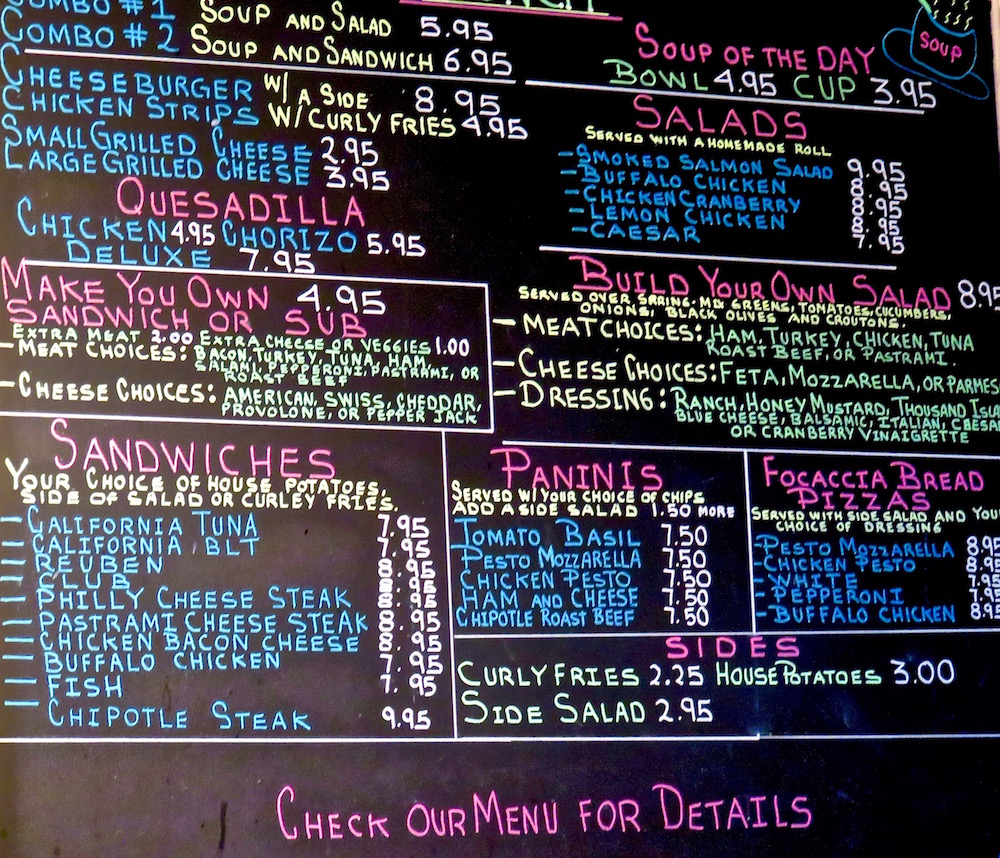 COMBO #1 SOUP AND SALAD 5.95
COMBO #2 SOUP AND SANDWICH 6.95
CHEESEBURGER W/ A SIDE 8.95
CHICKEN STRIPS W/CURLY FRIES 4.95
SMALL GRILLED CHEESE 2.95
LARGE GRILLED CHEESE 3.95
QUESADILLA
CHICKEN 4.95 CHORIZO 5.95
DELUXE 7.95
SOUP OF THE DAY
SOUP
BOWL 4.95 CUP 3.95
SALADS
SERVED WITH A HOMEMADE ROLL
-SMOKED SALMON SALAD 9.95
-BUFFALO CHICKEN 8.95
-CHICKEN CRANBERRY 8.95
-LEMON CHICKEN 8.95
-CAESAR 7.95
MAKE YOU OWN 4.95
SANDWICH OR SUB
EXTRA MEAT 2.00 EXTRA CHEESE OR VEGGIES 1.00
-MEAT CHOICES: BACON, TURKEY, TUNA, HAM
SALAMI, PEPPERONI, PASTRAMI, OR
ROAST BEEF
-CHEESE CHOICES: AMERICAN, SWISS, CHEDDAR,
PROVOLONE, OR PEPPER JACK
BUILD YOUR OWN SALAD 8.95
SERVED OVER SPRING-MIX GREENS, TOMATOES, CUCUMBERS,
ONIONS, BLACK OLIVES AND CROUTONS.
-MEAT CHOICES: HAM, TURKEY, CHICKEN, TUNA
ROAST BEEF, OR PASTRAMI.
-CHEESE CHOICES: FETA, MOZZARELLA, OR PARMES
-DRESSING: RANCH, HONEY MUSTARD, THOUSAND ISLA
BLUE CHEESE, BALSAMIC, ITALIAN, CAESA
OR CRANBERRY VINAIGRETTE
SANDWICHES
YOUR CHOICE OF HOUSE POTATOES,
SIDE OF SALAD OR CURLEY FRIES.
-CALIFORNIA TUNA 7.95
-CALIFORNIA BLT 7.95
-REUBEN 8.95
-CLUB 8.95
-PHILLY CHEESE STEAK 8.95
-PASTRAMI CHEESE STEAK 8.95
-CHICKEN BACON CHEESE 8.95
-BUFFALO CHICKEN 7.95
-FISH 7.95
-CHIPOTLE STEAK 9.95
PANINIS
SERVED W/YOUR CHOICE OF CHIPS
ADD A SIDE SALAD 1.50 MORE
TOMATO BASIL 7.50
PESTO MOZZARELLA 7.50
CHICKEN PESTO 7.50
HAM AND CHEESE 7.50
CHIPOTLE ROAST BEEF 7.50
FOCACCIA BREAD
PIZZAS
SERVED WITH SIDE SALAD AND YOU
CHOICE OF DRESSING
-PESTO MOZZARELLA 8.95
-CHICKEN PESTO 8.95
-WHITE 7.95
-PEPPERONI 7.95
-BUFFALO CHICKEN 8.95
SIDES
CURLY FRIES 2.25 HOUSE POTATOES 3.00
SIDE SALAD 2.95
CHECK OUR MENU FOR DETAILS